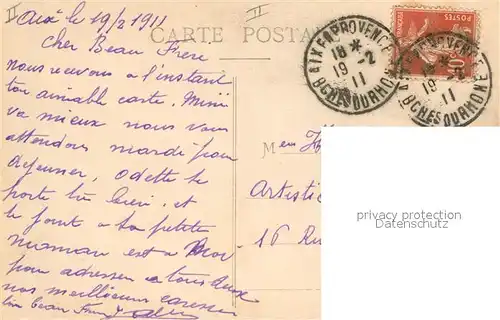 II
II
Aix le 19/2 1911
CARTE POSTALE
Cher Beau Frère
nous recevons à l'instant
ton aimable carte. Mimi
va mieux nous vous
attendons mardi pour
dejeuner, Odette se
porte très bien, et
le joint à sa petite
maman et à moi
pour adresser a tous deux
nos meilleures caresses
ton beau Frère
M
Artistic
16 Rue
AIX EN PROVENCE
18 * 19 -2 11
BCHES DU RHONE
AIX EN PROVENCE
18 * 19 -2 11
BCHES DU RHONE
POSTES
privacy protection
Datenschutz